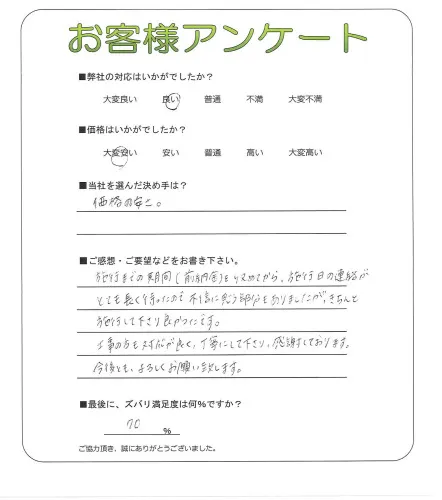 お客様アンケート
■弊社の対応はいかがでしたか？
大変良い 良い 普通 不満 大変不満
■価格はいかがでしたか？
大変安い 安い 普通 高い 大変高い
■当社を選んだ決め手は？
価格の安さ。
■ご感想・ご要望などをお書き下さい。
施行までの期間(前納金)を収めてから、施行日の連絡が
とても長く待ったので 不信に思う部分もありましたが、きちんと
施行して下さり良かったです。
工事の方も対応が良く、丁寧にして下さり、感謝しております。
今後とも、よろしくお願い致します。
■最後に、ズバリ満足度は何%ですか？
70 %
ご協力頂き、誠にありがとうございました。